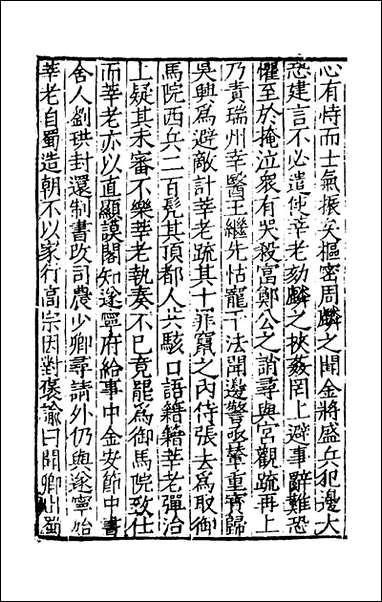 心有恃而士氣振矣樞密周麟之聞金將盛兵犯邊大
恐建言不必遣使莘老劾麟之挾姦罔上避事辭難恐
懼至於掩泣衆有哭殺富鄭公之誚尋與宮觀疏再上
乃責瑞州幸醫王繼先怙寵干法聞邊警亟輦重寳歸
吳興爲避敵計莘老疏其十罪竄之内侍張去爲取御
馬院西兵二百髡其頂都人共駭口語籍籍莘老彈治
上疑其未審不樂莘老執奏不已竟罷爲御馬院致仕
而莘老亦以直顯謨閣知遂寧府給事中金安節中書
舍人劉珙封還制書改司農少卿尋請外仍與遂寧始
莘老自蜀造朝不以家行高宗因對褒諭曰聞卿出蜀